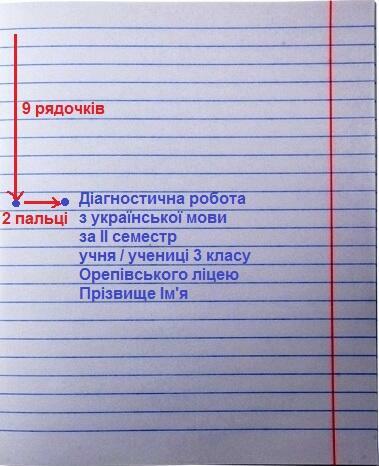 9 рядочків
2 пальці
Діагностична робота
з української мови
за ІІ семестр
учня / учениці 3 класу
Орепівського ліцею
Прізвище Ім'я